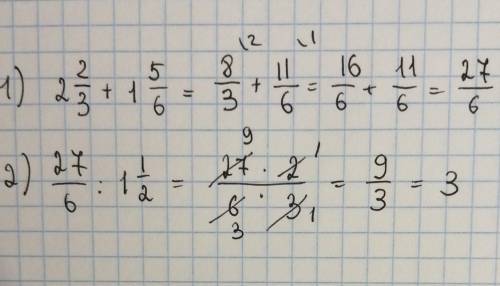 1) 2 2/3 + 1 5/6 = 8/3 \2 + 11/6 \1 = 16/6 + 11/6 = 27/6
2) 27/6 : 1 1/2 = 27 9 · 2 1 / 6 3 · 3 1 = 9/3 = 3